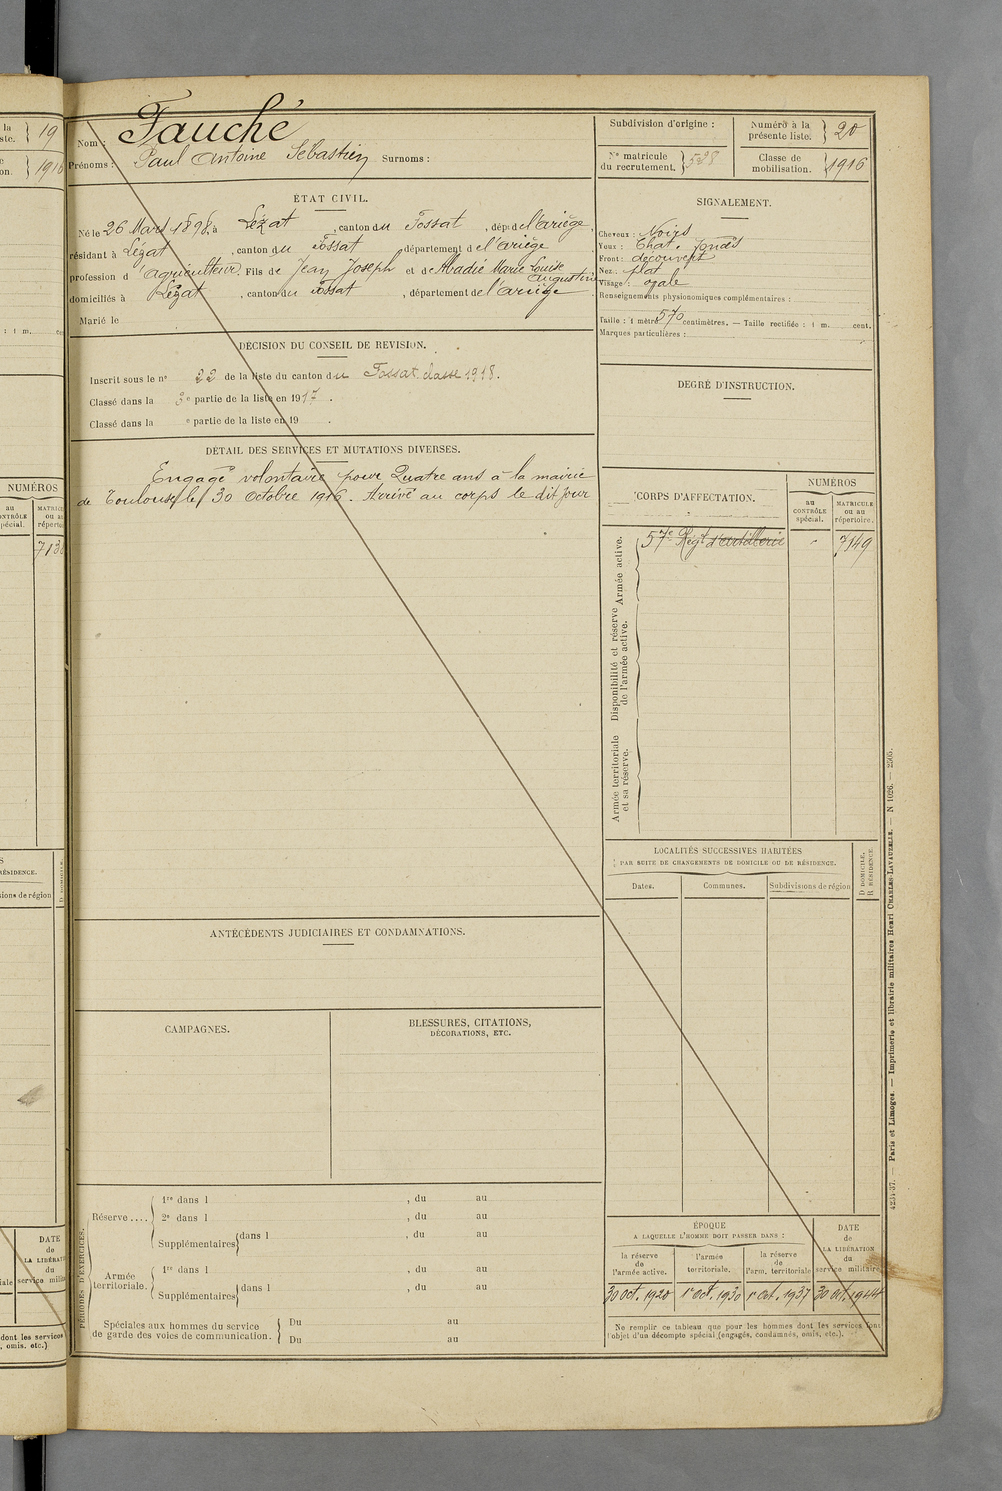 Nom : Fauché
Prénoms : Paul Antoine Sébastien Surnoms :
Subdivision d'origine :
Numéro à la présente liste. } 20
N° matricule du recrutement. } 528
Classe de mobilisation. } 1916
ÉTAT CIVIL.
Né le 26 Mars 1898, à Lézat, canton du Fossat, dép. de l'ariège,
résidant à Lézat, canton du Fossat, département de l'ariège
profession d'agriculteur, Fils de Jean Joseph et de Abadie Marie Louise Augustine
domiciliés à Lézat, canton du Fossat, département de l'ariège
Marié le
SIGNALEMENT.
Cheveux : Noirs
Yeux : Chat. foncés
Front : découvert
Nez : plat
Visage : ovale
Renseignements physionomiques complémentaires :
Taille : 1 mètre 570 centimètres. — Taille rectifiée : 1 m. cent.
Marques particulières :
DÉCISION DU CONSEIL DE REVISION.
Inscrit sous le n° 22 de la liste du canton du Fossat classe 1918.
Classé dans la 3e partie de la liste en 1917.
Classé dans la e partie de la liste en 19 .
DEGRÉ D'INSTRUCTION.
DÉTAIL DES SERVICES ET MUTATIONS DIVERSES.
Engagé volontaire pour Quatre ans à la mairie
de Toulouse le 30 Octobre 1916. Arrivé au corps le dit jour
CORPS D'AFFECTATION.
NUMÉROS
au CONTRÔLE spécial.
MATRICULE ou au répertoire.
Armée active.
57e Régt d'artillerie " 7149
Disponibilité et réserve de l'armée active.
Armée territoriale et sa réserve.
LOCALITÉS SUCCESSIVES HABITÉES
PAR SUITE DE CHANGEMENTS DE DOMICILE OU DE RÉSIDENCE.
Dates. Communes. Subdivisions de région
D DOMICILE,
R RÉSIDENCE
ANTÉCÉDENTS JUDICIAIRES ET CONDAMNATIONS.
CAMPAGNES.
BLESSURES, CITATIONS,
DÉCORATIONS, ETC.
PÉRIODES D'EXERCICES.
Réserve ....
1re dans l , du au
2e dans l , du au
Supplémentaires { dans l , du au
Armée territoriale.
1re dans l , du au
Supplémentaires { dans l , du au
Spéciales aux hommes du service
de garde des voies de communication. {
Du au
Du au
ÉPOQUE
A LAQUELLE L'HOMME DOIT PASSER DANS :
la réserve de l'armée active.
l'armée territoriale.
la réserve de l'arm. territoriale
DATE de LA LIBÉRATION du service militaire
30 Oct. 1920 1r Oct. 1930 1r Oct. 1937 30 Oct. 1944
Ne remplir ce tableau que pour les hommes dont les services font
l'objet d'un décompte spécial (engagés, condamnés, omis, etc.).
Paris et Limoges. — Imprimerie et librairie militaires Henri CHARLES-LAVAUZELLE. — N 1026. —
19
1916
NUMÉROS